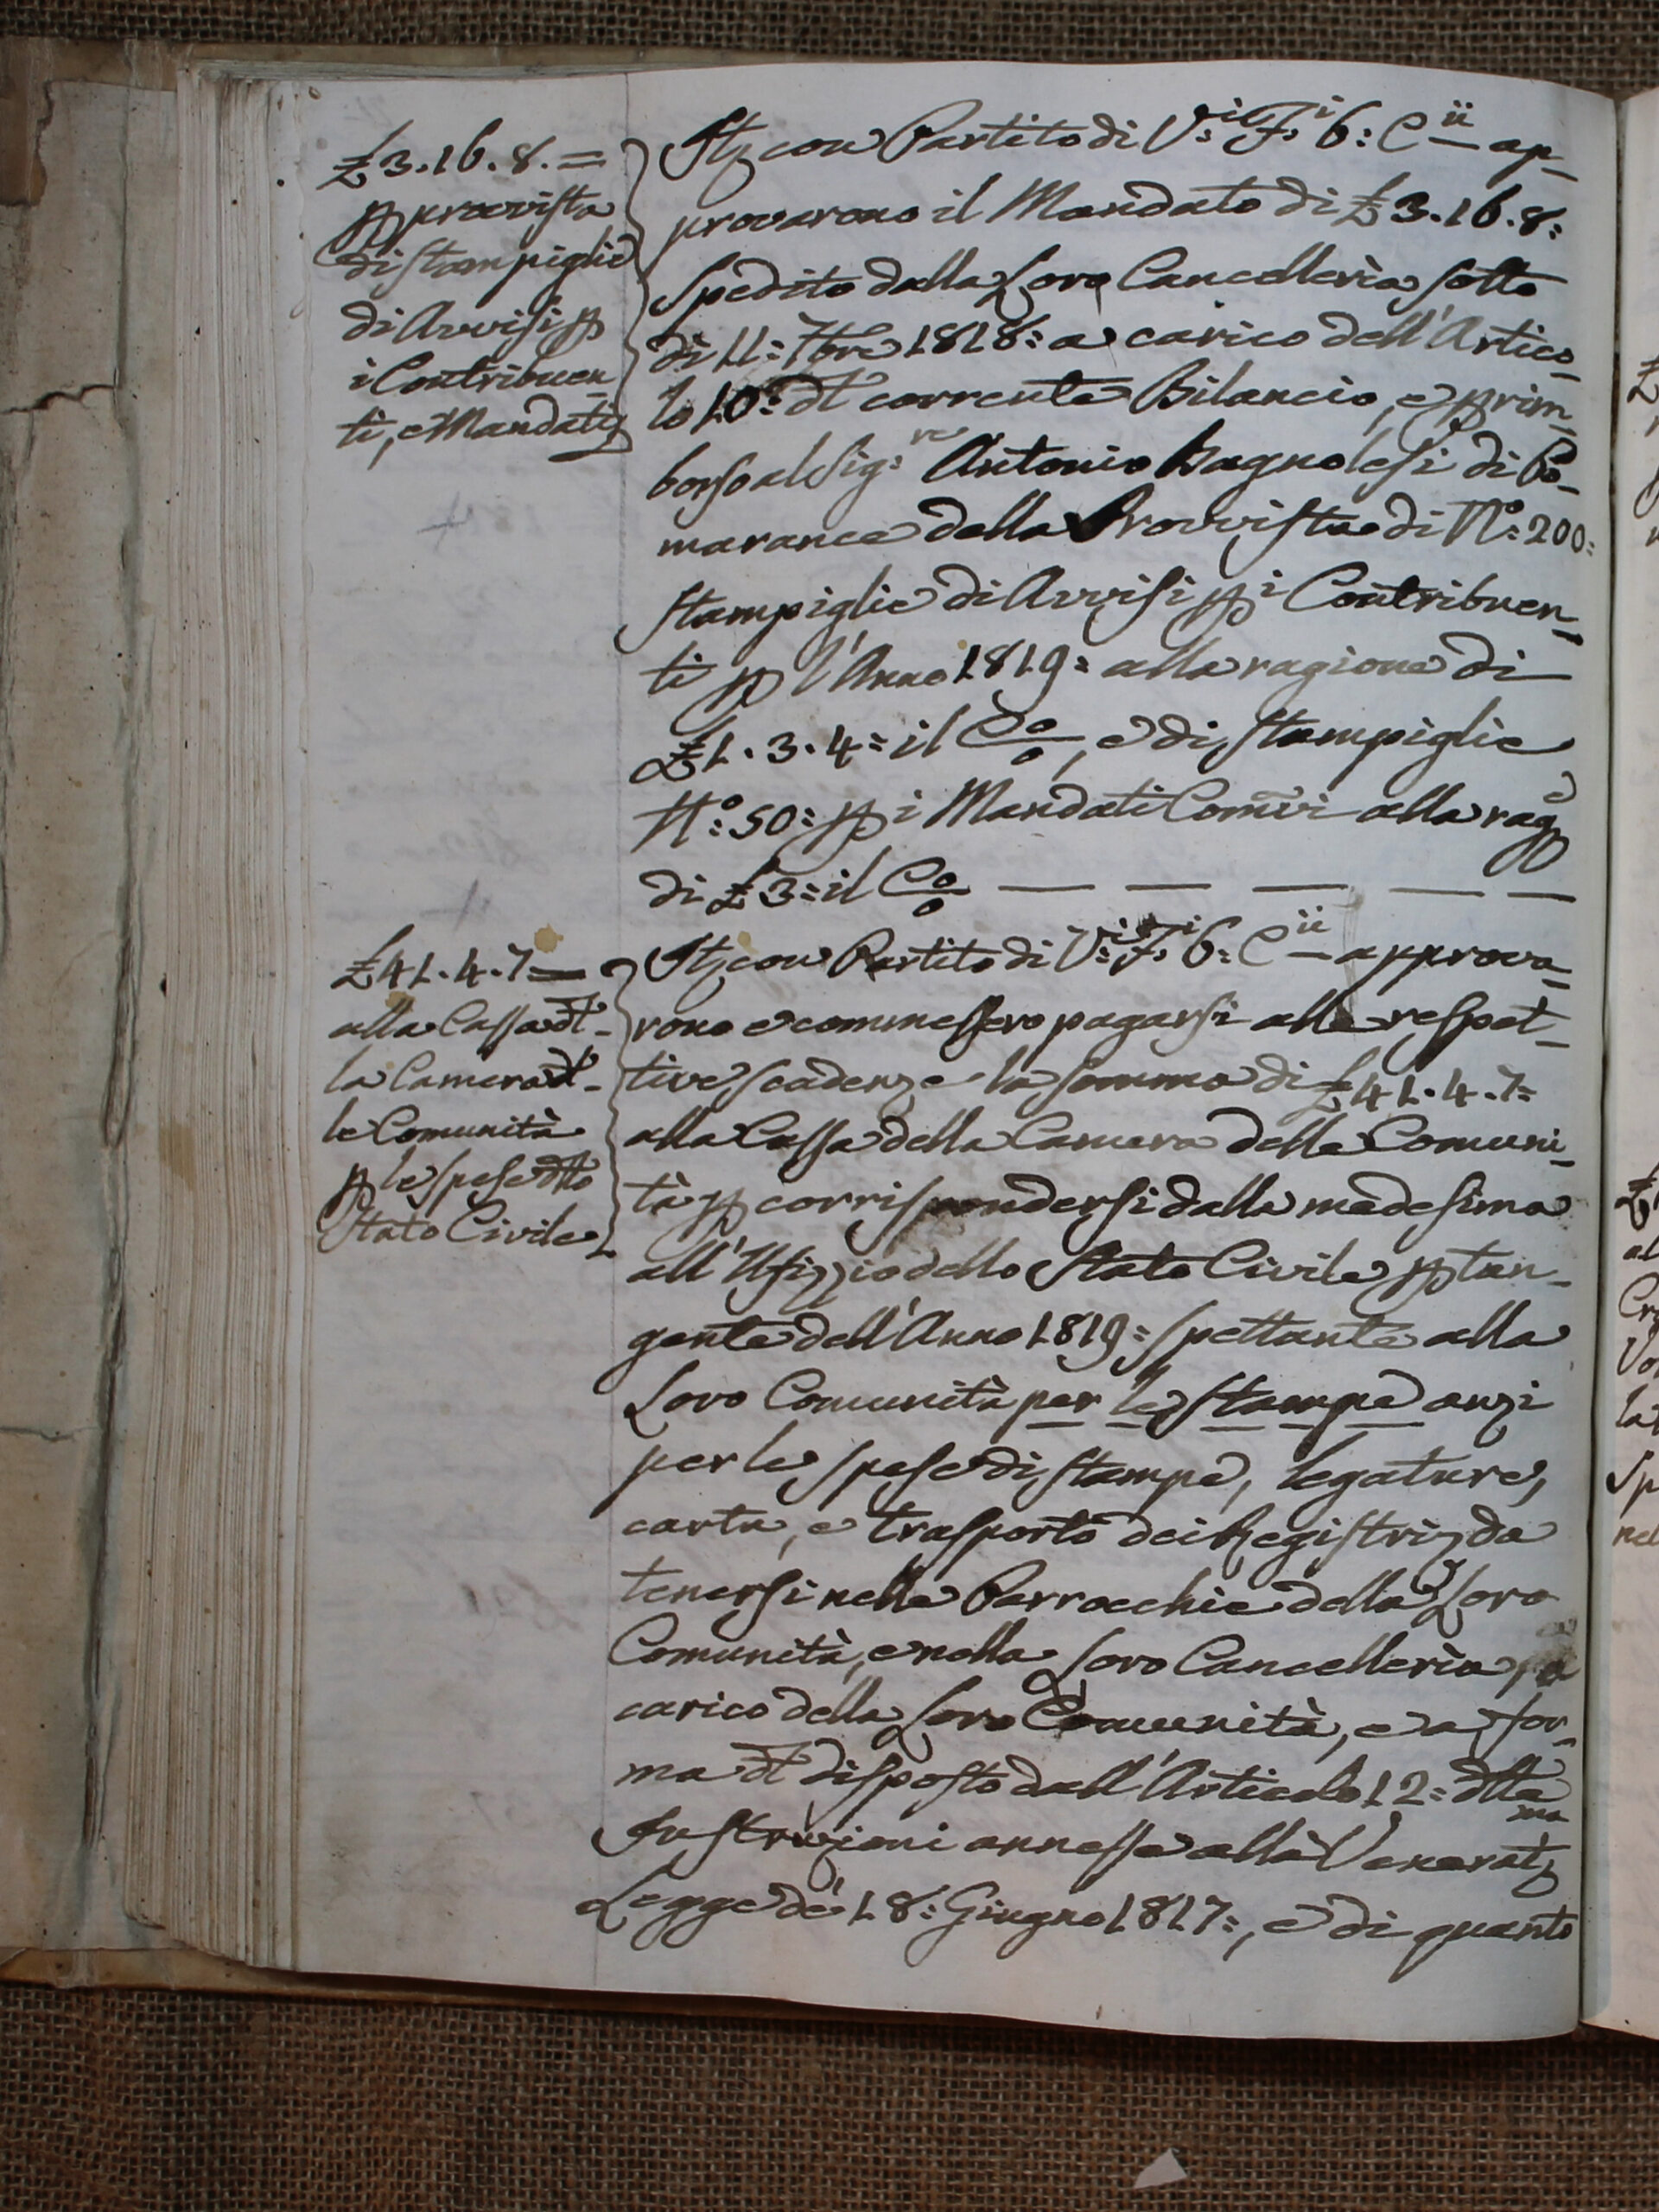 £3.16.8.=
p provvista
di stampiglie
di Avvisi p
i Contribuen
ti, e Mandati
Itz con Partito di V:i F:i 6: C—ii ap-
provarono il Mandato di £3.16.8:
Spedito dalla Loro Cancelleria sotto
dì 11: 7bre 1818: a carico dell'Artico-
lo 10: dt corrente Bilancio, e p rim-
borso al Sig:re Antonio Bagnolesi di Po-
marance della Provvista di N°: 200:
stampiglie di Avvisi p i Contribuen-
ti p l'Anno 1819: alla ragione di
£1.3.4: il C%, e di stampiglie
N°: 50: p i Mandati Comvi alla rage
di £3: il C% — — — — —
£41.4.7=
alla Cassa dt-
la Camera dt-
le Comunità
p le spese dtto
Stato Civile
Itz con Partito di V:i F:i 6: C—ii approva-
rono e commessero pagarsi alle respet-
tive scadenze la somma di £41.4.7=
alla Cassa della Camera delle Comuni-
tà p corrispondersi dalla medesima
all'Ufizzio dello Stato Civile p tan-
gente dell'Anno 1819: spettante alla
Loro Comunità per le stampe anzi
per le spese di stampe, legature,
carta, e trasporto dei Registri da
tenersi nelle Parrocchie della Loro
Comunità, e nella Loro Cancelleria, a
carico della Loro Comunità, e a for-
ma dt disposto dall'Articolo 12: dtte
Instruzioni annesse alla Veneratma
Legge de' 18: Giugno 1817:, e di quanto